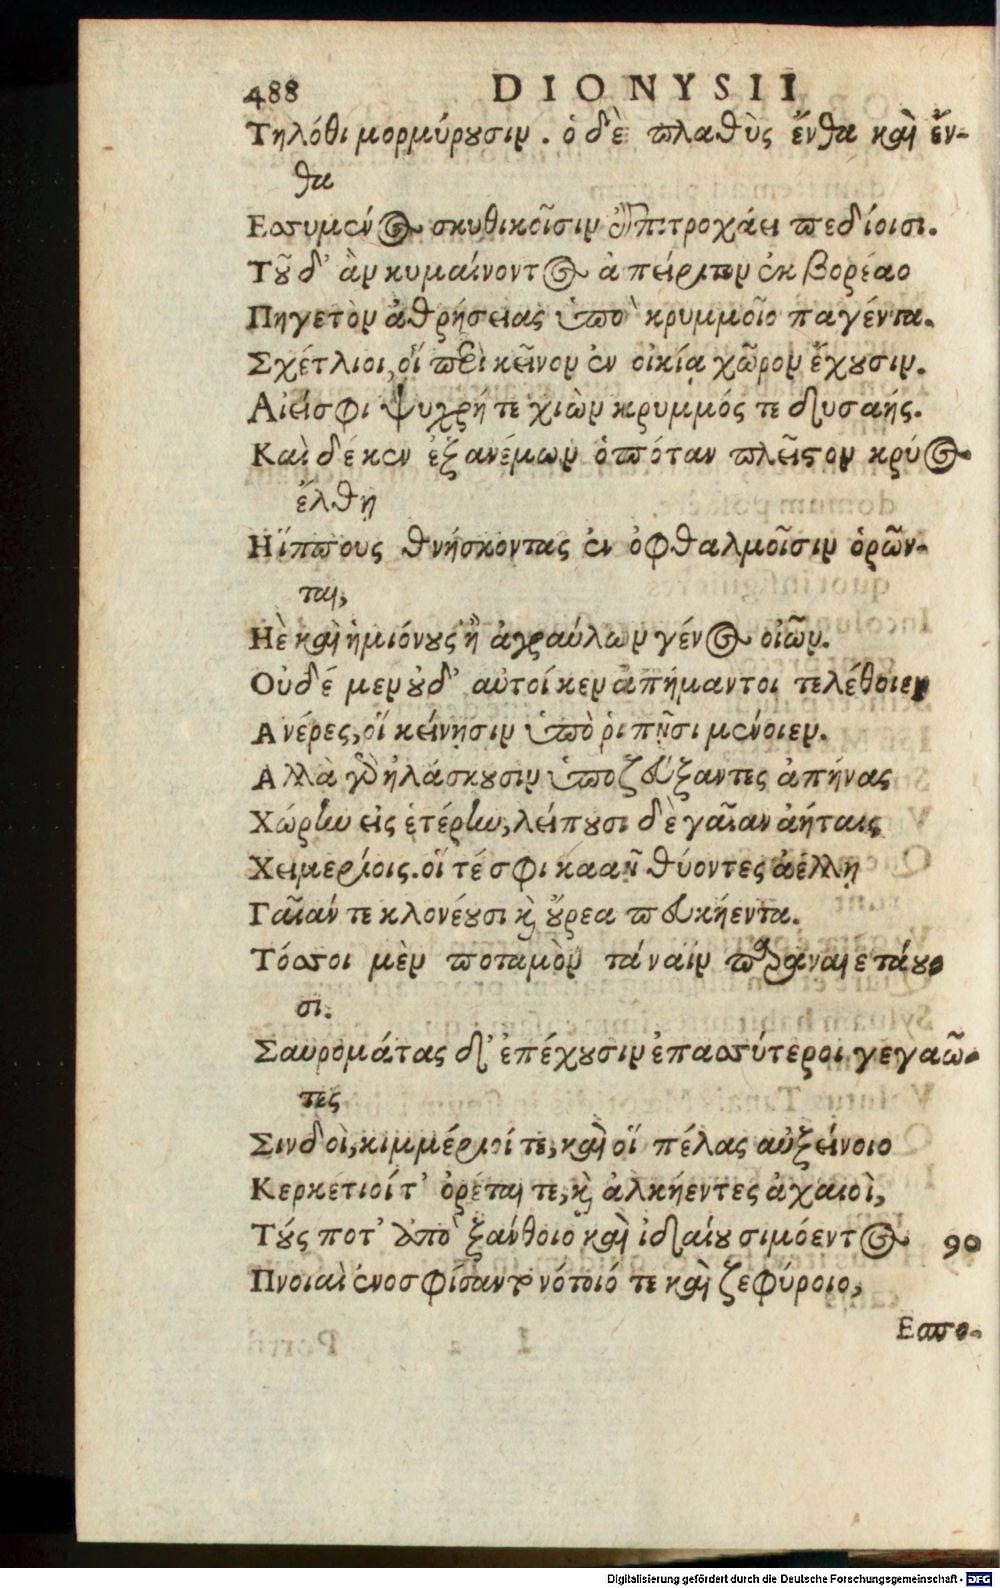 488 DIONYSII
Τηλόθι μορμύρουσιν. ὁ δὲ πλαθὺς ἔνθα καὶ ἔν-
θα
Εσσυμένος σκυθικοῖσιν ἐπιτροχάει πεδίοισι.
Τοῦ δ' ἂν κυμαίνοντος ἀπείριτον ἐκ βορέαο
Πηγετὸν ἀθρήσειας ὑπὸ κρυμμοῖο παγέντα.
Σχέτλιοι, οἳ περὶ κεῖνον ἐν οἰκία χῶρον ἔχουσιν.
Αἰεί σφι ψυχρή τε χιὼν κρυμμός τε δυσαής.
Καὶ δέ κεν ἐξ ανέμων ὁπόταν πλεῖστον κρύος
ἔλθῃ
Η ἵππους θνήσκοντας ἐν ὀφθαλμοῖσιν ὁρῶν-
ται,
Ηὲ καὶ ἡμιόνους ἢ ἀγραύλων γένος οἰῶν.
Οὐδέ μεν οὐδ' αὐτοί κεν ἀπήμαντοι τελέθοιεν
Ανέρες, οἵ κείνῃσιν ὑπὸ ῥιπῇσι μένοιεν.
Αλλὰ γὰρ ἠλάσκουσιν ὑποζεύξαντες ἀπήνας
Χώρην εἰς ἑτέρην, λείπουσι δὲ γαῖαν ἀήταις
Χειμερίοις. οἵ τέ σφι κααῇ θύοντες ἀέλλῃ
Γαῖάν τε κλονέουσι καὶ οὔρεα πευκήεντα.
Τόσσοι μὲν ποταμὸν τάναϊν περιναιετάου-
σι.
Σαυρομάτας δ' ἐπέχουσιν ἐπασσύτεροι γεγαῶ-
τες
Σινδοὶ, κιμμέριοί τε, καὶ οἵ πέλας αὐξείνοιο
Κερκετιοί τ' ὀρέται τε, καὶ ἀλκήεντες ἀχαιοὶ,
Τούς ποτ' ἀπὸ ξάνθοιο καὶ ἰδαίου σιμόεντος 90
Πνοιαὶ ἐνοσφίσαντο νότοιό τε καὶ ζεφύροιο,
Εσπο-
Digitalisierung gefördert durch die Deutsche Forschungsgemeinschaft - DFG